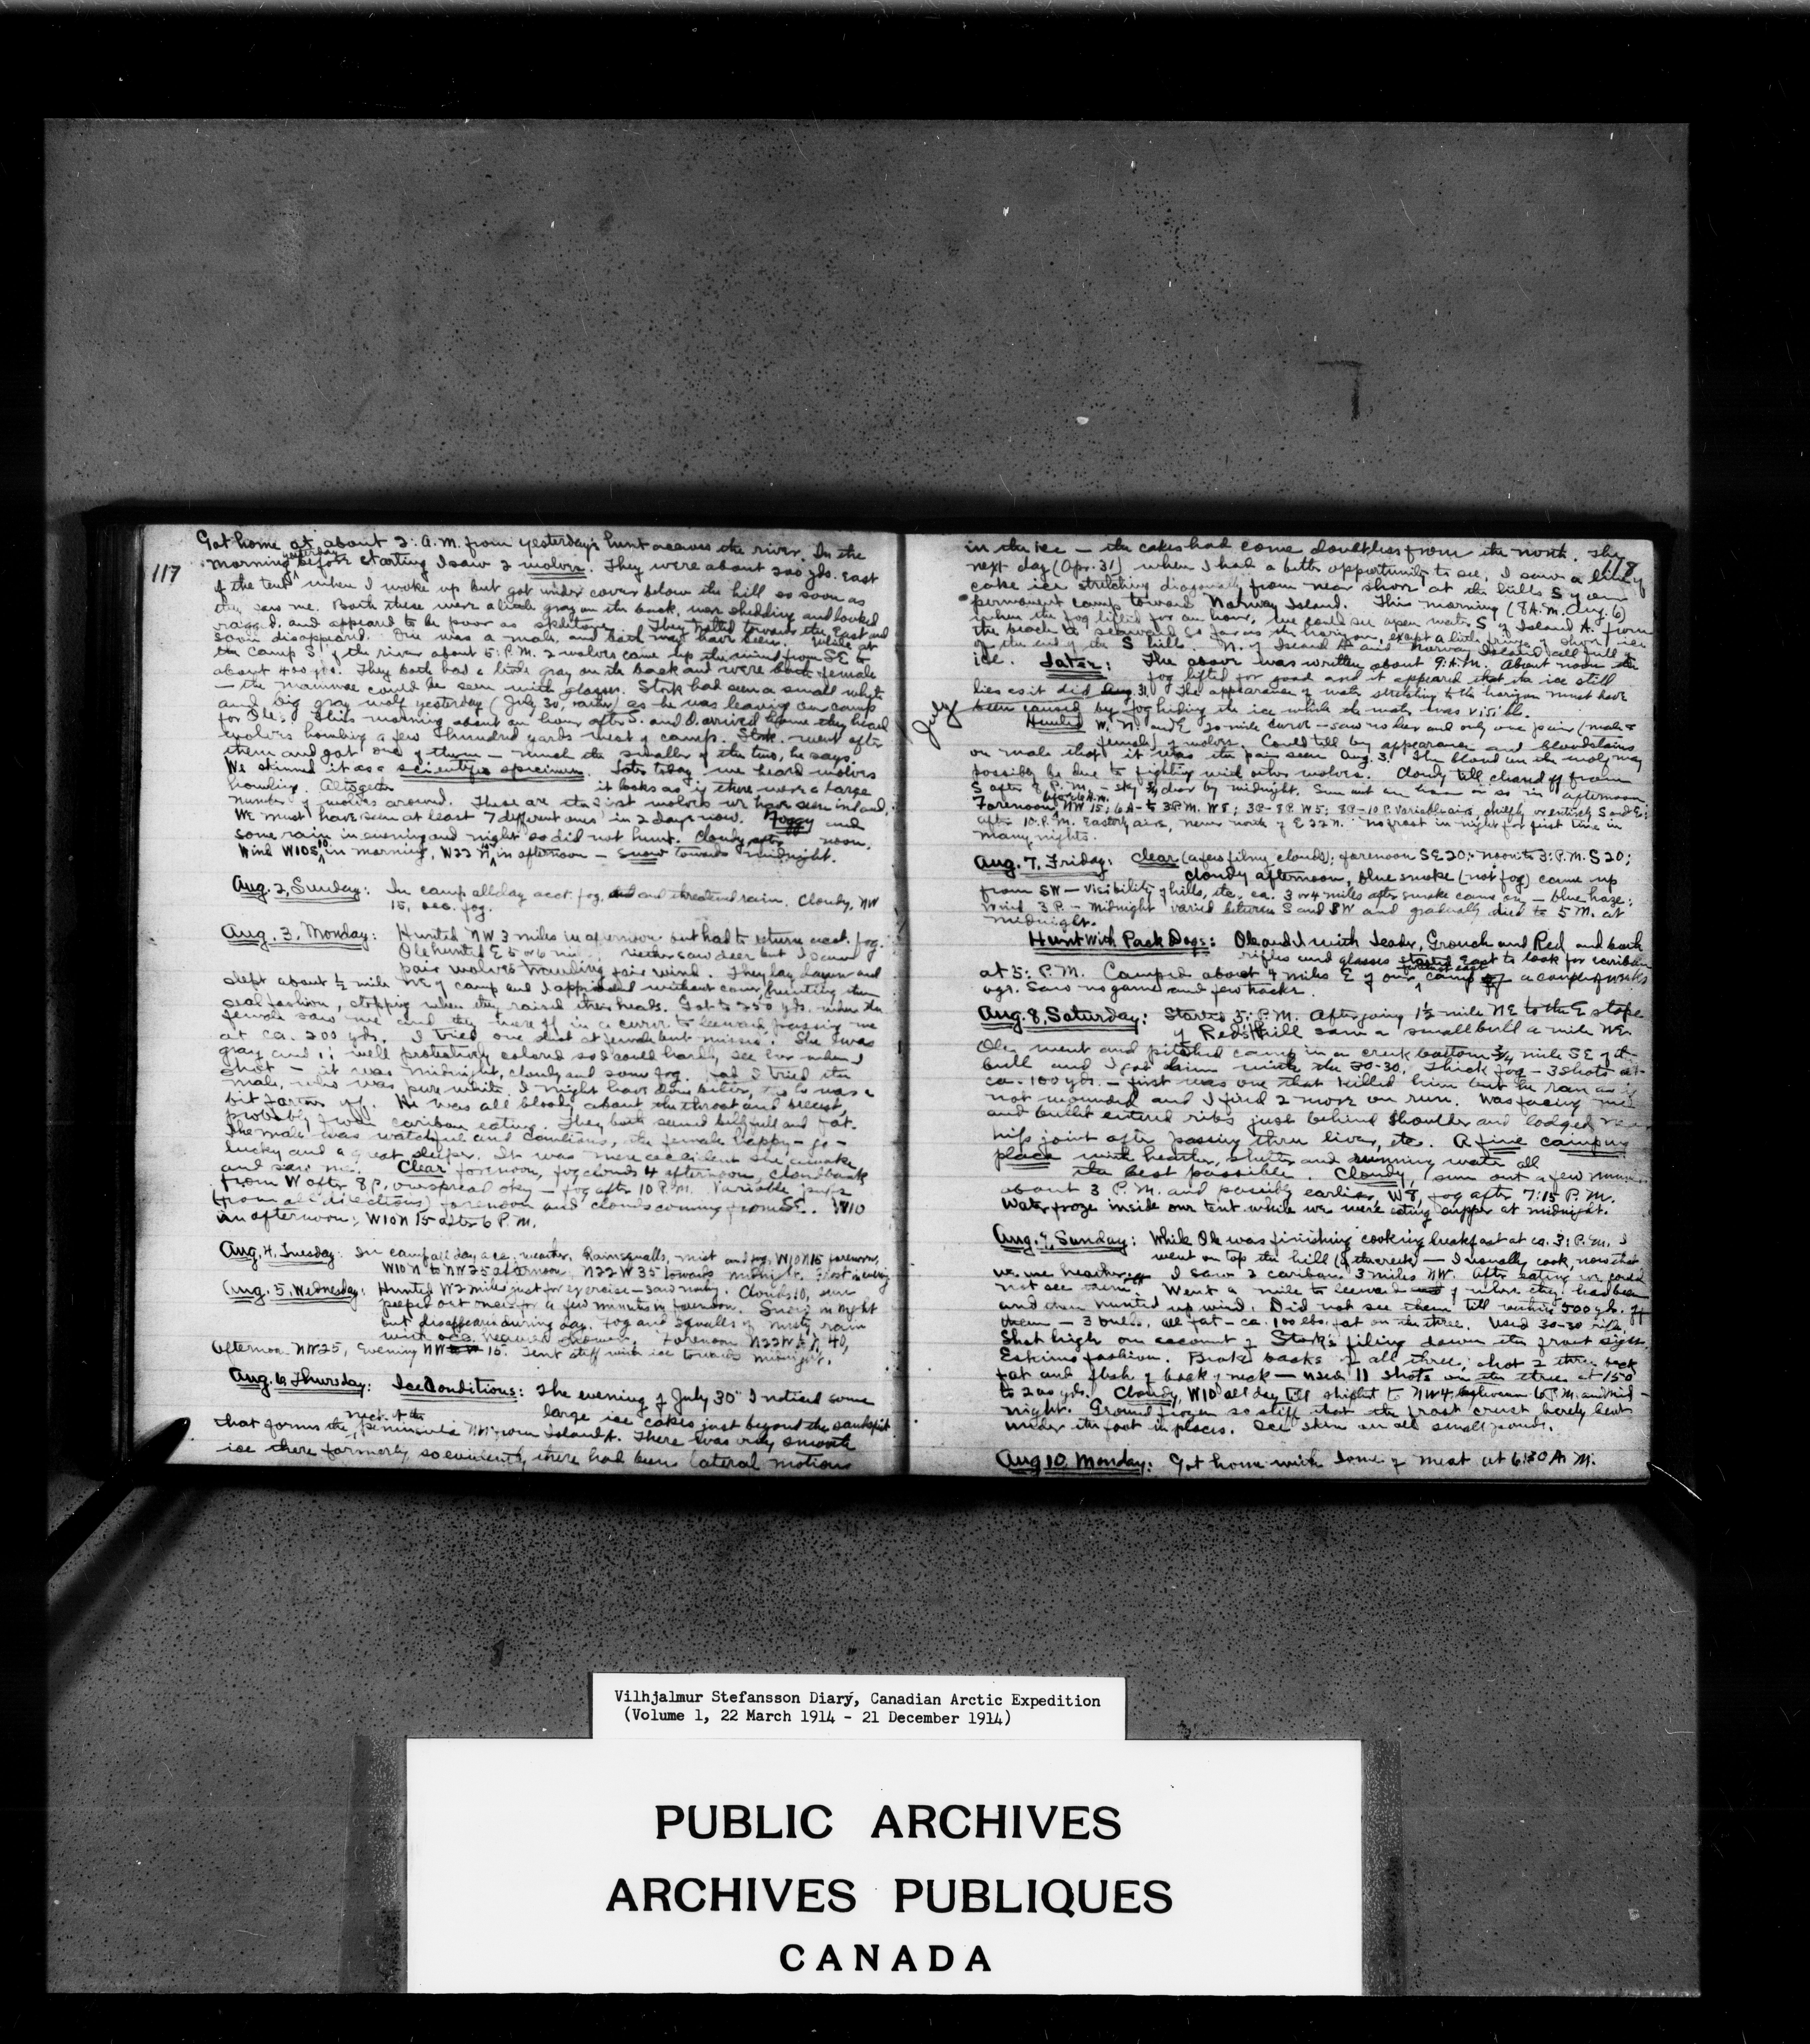 117
Got home at about 2: A.M. from yesterday's hunt across the river. In the
morning yesterday before starting I saw 2 wolves. They were about 200 yds. east
of the tent when I woke up but got under cover below the hill as soon as
they saw me. Both these were a little gray on the back, were shedding and looked
ragged, and appeared to be poor as skeletons. They trotted towards the East and
soon disappeared. One was a male, and both may have been. While at
the camp S of the river about 5: P.M. 2 wolves came up the wind from SE to
about 400 yds. They both had a little gray on the back and were both female
— the mammae could be seen with glasses. Stork had seen a small white
and big gray wolf yesterday (July 30, rather) as he was leaving our camp
for Ole. This morning about an hour after S. and O. arrived home they heard
wolves howling a few hundred yards west of camp. Stork. went after
them and got one of them — much the smaller of the two, he says.
We skinned it as a scientific specimen. Late today we heard wolves
howling. Altogether it looks as if there were a large
number of wolves around. These are the first wolves we have seen inland,
We must have seen at least 7 different ones in 2 days now. Foggy and
some rain in evening and night so did not hunt. Cloudy after noon.
Wind W10S 10 in morning, W22N in afternoon — snow towards midnight.
Aug. 2, Sunday: In camp all day acct. fog and threatened rain. Cloudy, NW
15, occ. fog.
Aug. 3, Monday: Hunted NW 3 miles in afternoon but had to return acct. fog.
Ole hunted E 5 or 6 mi.; neither saw deer but I saw a
pair wolves traveling fair wind. They lay down and
slept about ½ mile NE of camp and I approached without cover, hunting them
seal fashion, stopping when they raised their heads. Got to 250 yds. when the
female saw me and they were off in a curve to leeward, passing me
at ca. 200 yds. I tried one shot at female but missed. She was
gray and is well protectively colored so I could hardly see her when I
shot — it was midnight, cloudy and some fog. Had I tried the
male, who was pure white, I might have done better, tho he was a
bit farther off. He was all bloody about the throat and breast,
probably from caribou eating. They both seemed belly full and fat.
The male was watchful and cautious, the female happy-go-
lucky and a great sleeper. It was mere accident she awoke
and saw me. Clear forenoon, fog clouds 4 afternoon, cloudbank
from W after 8 P. overspread sky — fog after 10 P.M. Variable puffs
(from all directions) forenoon and clouds coming from SE. W10
in afternoon; W10N 15 after 6 P.M.
Aug. 4, Tuesday: In camp all day acc. weather. Rainsqualls, mist and fog, W10N15 forenoon,
W10N to NW25 afternoon, N22W35 towards midnight. Frost in evening
Aug. 5, Wednesday: Hunted W 2 miles just for exercise — saw nothing. Clouds 10, sun
peeped out once for a few minutes in forenoon. Snow in night
but disappeared during day. Fog and squalls of misty rain
with occ. heavier showers. Forenoon N22W to N 40,
Afternoon NW25, Evening NW 15. Tent stiff with ice towards midnight.
Aug. 6, Thursday: Ice Conditions: The evening of July 30 I noticed some
large ice cakes just beyond the sandspit
that forms the neck of the peninsula NW from Island A. There was only smooth
ice there formerly so evidently there had been lateral motions
118
in the ice — the cakes had come doubtless from the north. The
next day (Apr. 31) when I had a better opportunity to see, I saw a line of
cake ice stretching diagonally from near shore at the hills S of our
permanent camp toward Norway Island. This morning (8 A.M. Aug. 6)
when the fog lifted for an hour, we could see open water S of Island A. from
the beach to seaward so far as the horizon, except a little fringe of shore ice
off the end of the S hills. N. of Island A and Norway Island all full of
ice. Later: The above was written about 9: A.M. About noon the
fog lifted for good and it appeared that the ice still
lies as it did Aug. 31. The appearance of water stretching to the horizon must have
been caused by fog hiding the ice while the water was visible.
July
Hunted W. N. and E 20 mile curve — saw no deer and only one pair (male &
female) of wolves. Could tell by appearance and bloodstains
on male that it was the pair seen Aug. 3. The blood on the male may
possibly be due to fighting with other wolves. Cloudy till cleared off from
S after P.M. — sky ¾ clear by midnight. Sun out an hour or so in afternoon.
Forenoon before 6 A.M. NW 15; 6A- to 3P.M. W8; 3P-8P. W5; 8P-10P. Variable airs, chiefly or entirely S and E;
after 10.P.M. Easterly airs, never north of E22N. No frost in night for first time in
many nights.
Aug. 7, Friday: Clear (a few filmy clouds); forenoon SE20; noon to 3: P.M. S20;
cloudy afternoon, blue smoke (not fog) came up
from SW — visibility of hills, etc. ca. 3 or 4 miles after smoke came on — blue haze;
wind 3 P. - Midnight varied between S and SW and gradually died to 5 M. at
midnight.
Hunt with Pack Dogs: Ole and I with Leader, Grouch and Red and both
rifles and glasses started East to look for caribou
at 5: P.M. Camped about 4 miles E of our farthest east camp of a couple of weeks
ago. Saw no game and few tracks.
Aug. 8, Saturday: Started 5: P.M. After going 1½ mile NE to the E slope
of Red Hill saw a small bull a mile NE.
Ole went and pitched camp in a creek bottom ¾ mile SE of the
bull and I got him with the 30-30. Thick fog — 3 shots at
ca. 100 yds. — first was one that killed him but he ran as if
not wounded and I fired 2 more on run. Was facing me
and bullet entered ribs just behind shoulder and lodged near
hip joint after passing thru liver, etc. A fine camping
place with heather, shelter and running water all
the best possible. Cloudy, sun out a few minutes
about 3 P.M. and possibly earlier, W8, fog after 7:15 P.M.
Water froze inside our tent while we were eating supper at midnight.
Aug. 9, Sunday: While Ole was finishing cooking breakfast at ca. 3: P.M. I
went on top the hill (of the creek) — I usually cook, now that
we use heather. I saw 2 caribou 3 miles NW. After eating we could
not see them. Went a mile to leeward of where they had been
and then hunted up wind. Did not see them till within 500 yds. of
them — 3 bulls, all fat — ca. 100 lbs. fat on the three. Used 30-30 rifle.
Shot high on account of Stork's filing down the front sight
Eskimo fashion. Broke backs of all three, shot 2 thru back
fat and flesh of back of neck — used 11 shots on the three at 150
to 200 yds. Cloudy, W10 all day till shifted to NW4 between 6 P.M. and mid-
night. Ground frozen so stiff that the frost crust barely bent
under the foot in places. Ice skim on all small ponds.
Aug 10, Monday: Got home with some of meat at 6:30 A.M.
Vilhjalmur Stefansson Diary, Canadian Arctic Expedition
(Volume 1, 22 March 1914 - 21 December 1914)
PUBLIC ARCHIVES
ARCHIVES PUBLIQUES
CANADA